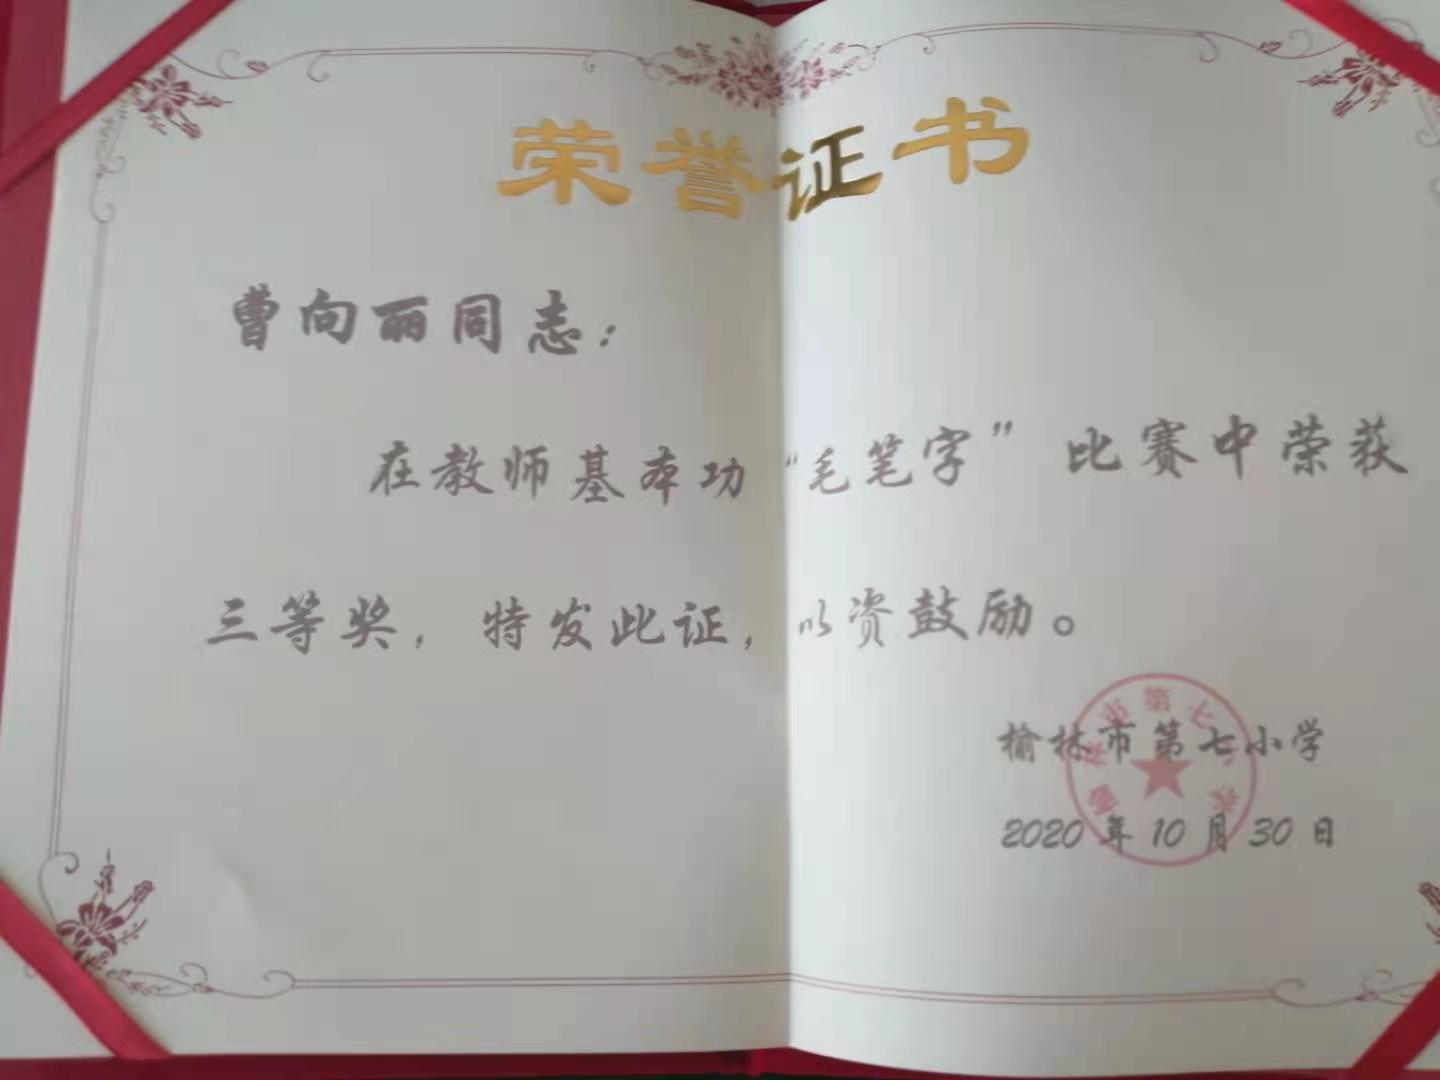 荣誉证书
曹向丽同志：
在教师基本功“毛笔字”比赛中荣获
三等奖，特发此证，以资鼓励。
榆林市第七小学
2020年10月30日